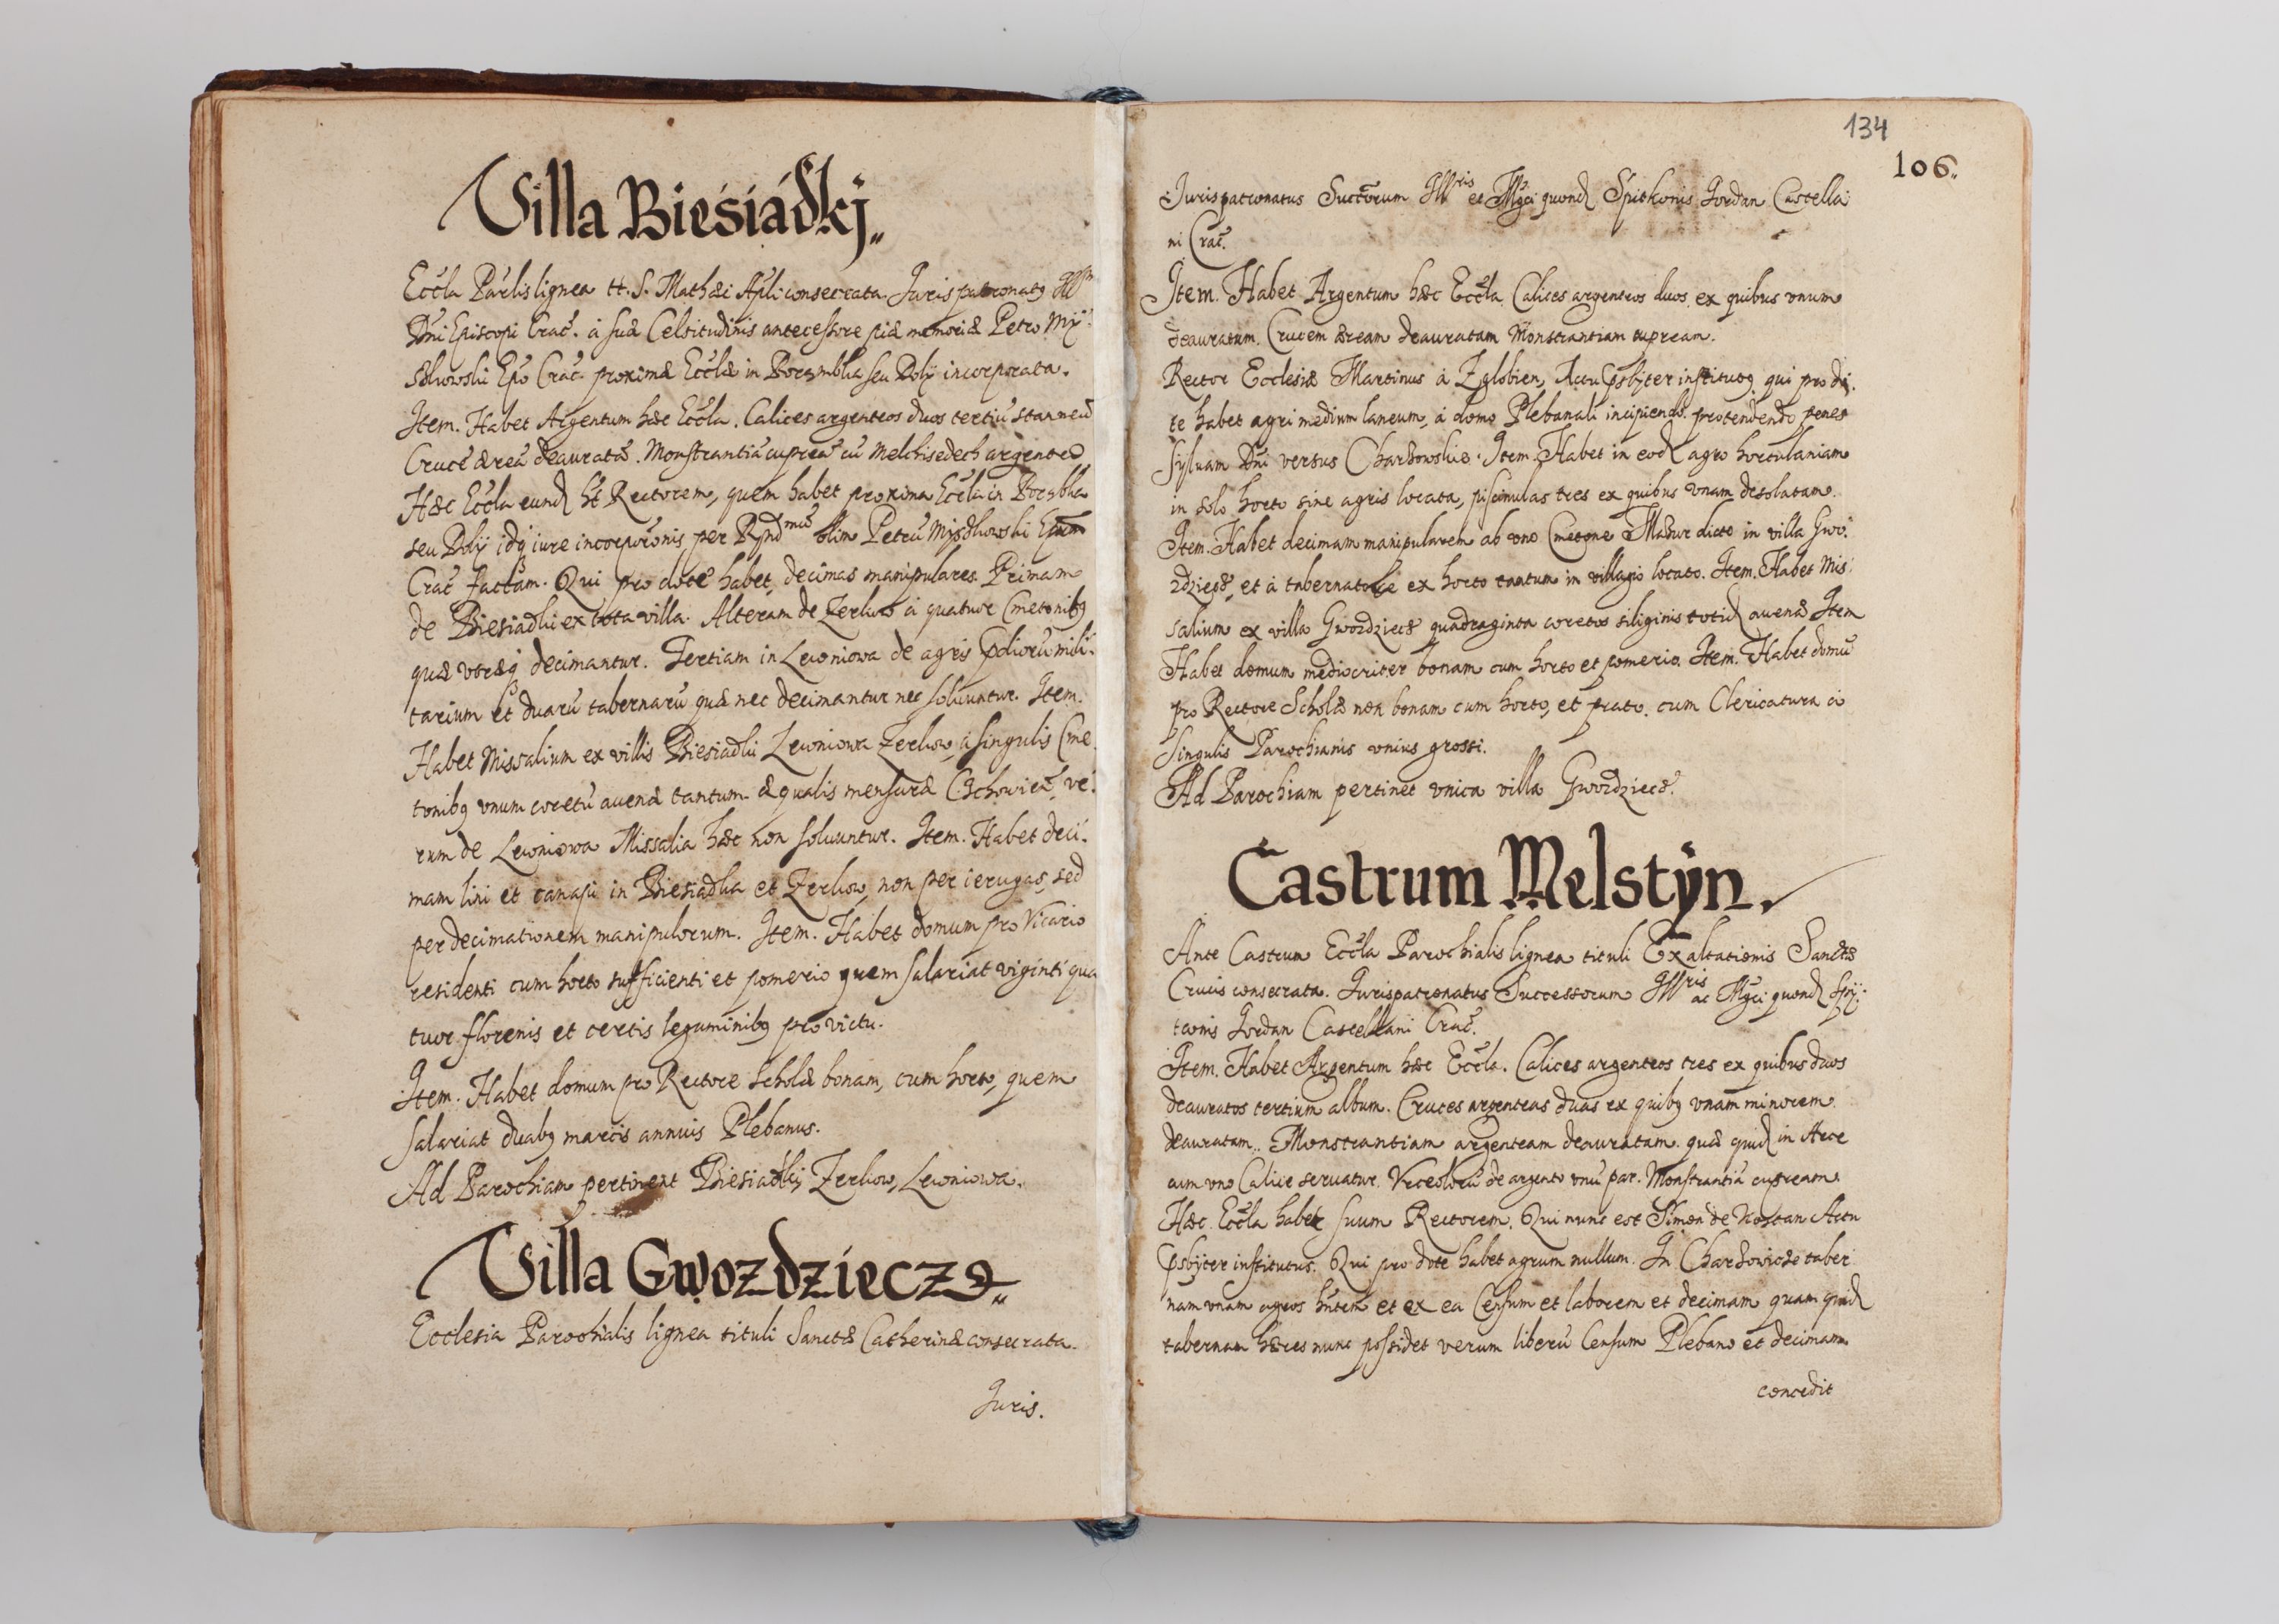 Villa Biesiadkj„
Eccła Parlis lignea tt. S. Mathæi Apli consecrata. Juris patronatq Illmi
Dni Episcopi Crac. à suæ Celsitudinis antecessore piæ memoriæ Petro Mÿ:
skowski Epo Crac. proximæ Ecclæ in Porambka seu Dolÿ incorporata.
Item. Habet Argentum hæc Eccla. Calices argenteos duos tertiũ stanneũ
Crucẽ æreã deauratã. Monstrantiã cupreã cũ Melchisedech argenteo
Hæc Eccla eund ht Rectorem, quem habet proxima Eccla in Porabka
seu Dolÿ idq iure incorporonis per Rndmũ olim Petrũ Myszkowski Epum
Crac factam. Qui pro dote habet, decimas manipulares. Primam
de Biesiadki ex tota villa. Alteram de Zerkow à quatuor Cmetonibq
quæ utræq decimantur. Tertiam in Lewniowa de agris prædiorũ mili:
tarium et duarũ tabernarũ quæ nec decimantur nec soluuntur. Item.
Habet Missalium ex villis Biesiadki Lewniowa Zerkow, à singulis Cme
tonibq vnum coretũ auenæ tantum æqualis mensuræ Cchowien, ve:
rum de Lewniowa Missalia hæc non soluuntur. Item. Habet deci:
mam lini et canapi in Biesiadka et Zerkow, non per ierugas, sed
per decimationem manipulorum. Item. Habet domum pro Vicario
residenti cum horto sufficienti et pomerio quem salariat viginti qua
tuor florenis et certis leguminibq pro victu.
Item. Habet domum pro Rectore scholæ bonam, cum horto, quem
salariat duabq marcis annuis Plebanus.
Ad Parochiam pertinent Biesiadki, Zerkow, Lewniowa.
Villa Gwozdziecze„
Ecclesia Parochialis lignea tituli Sanctæ Catherinæ consecrata.
Juris.
134
106„
Jurispatronatus Succorum Illris et Mgci quond Spitkonis Jordan Castella:
ni Crac.
Item. Habet Argentum hæc Eccla. Calices argenteos duos, ex quibus vnum
deauratum. Crucem æream deauratam Monstrantiam cupream.
Rector Ecclesiæ Martinus à Zglobien, Actu Psbÿter institutq qui pro do:
te habet agri medium laneum, à domo Plebanali incipiendo protendendo penes
syluam Dni versus Charzowskie. Item. Habet in eod agro hortulaniam
in solo horto sine agris locata, piscinulas tres ex quibus vnam desolatam.
Item. Habet decimam manipularem ab vno Cmetone Mazur dicto in villa Gwo:
zdziecz, et à tabernatore ex horto tantum in villagio locato. Item. Habet Mis:
salium ex villa Gwozdziecz quadraginta coretos siliginis totid auenæ Item
Habet domum mediocriter bonam cum horto et pomerio. Item. Habet domũ
pro Rectore Scholæ non bonam cum horto, et prato. cum Clericatura à
singulis Parochianis vnius grossi.
Ad Parochiam pertinet vnica villa Gwozdziecz.
Castrum Melstÿn.
Ante Castrum Eccla Parochialis lignea tituli Exaltationis Sanctæ
Crucis consecrata. Jurispatronatus Successorum Illris ac Mgci quond Spÿ:
tconis Jordan Castellani Crac.
Item. Habet Argentum hæc Eccla. Calices argenteos tres ex quibus duos
deauratos tertium album. Cruces argenteas duas ex quibq vnam minorem
deauratam. Monstrantiam argenteam deauratam. quæ quid in Arce
cum vno Calice seruatur. Vrceolorũ de argento vnũ par. Monstrantiã cupream
Hæc Eccla habet suum Rectorem. Qui nunc est Simon de Kostan Actu
Psbÿter institutus. Qui pro dote habet agrum nullum. In Charzowicze taber
nam vnam agros hñtem et ex ea Censum et laborem et decimam quam quid
tabernam hæres nunc possidet verum liberũ Censum Plebano et decimam
concedit